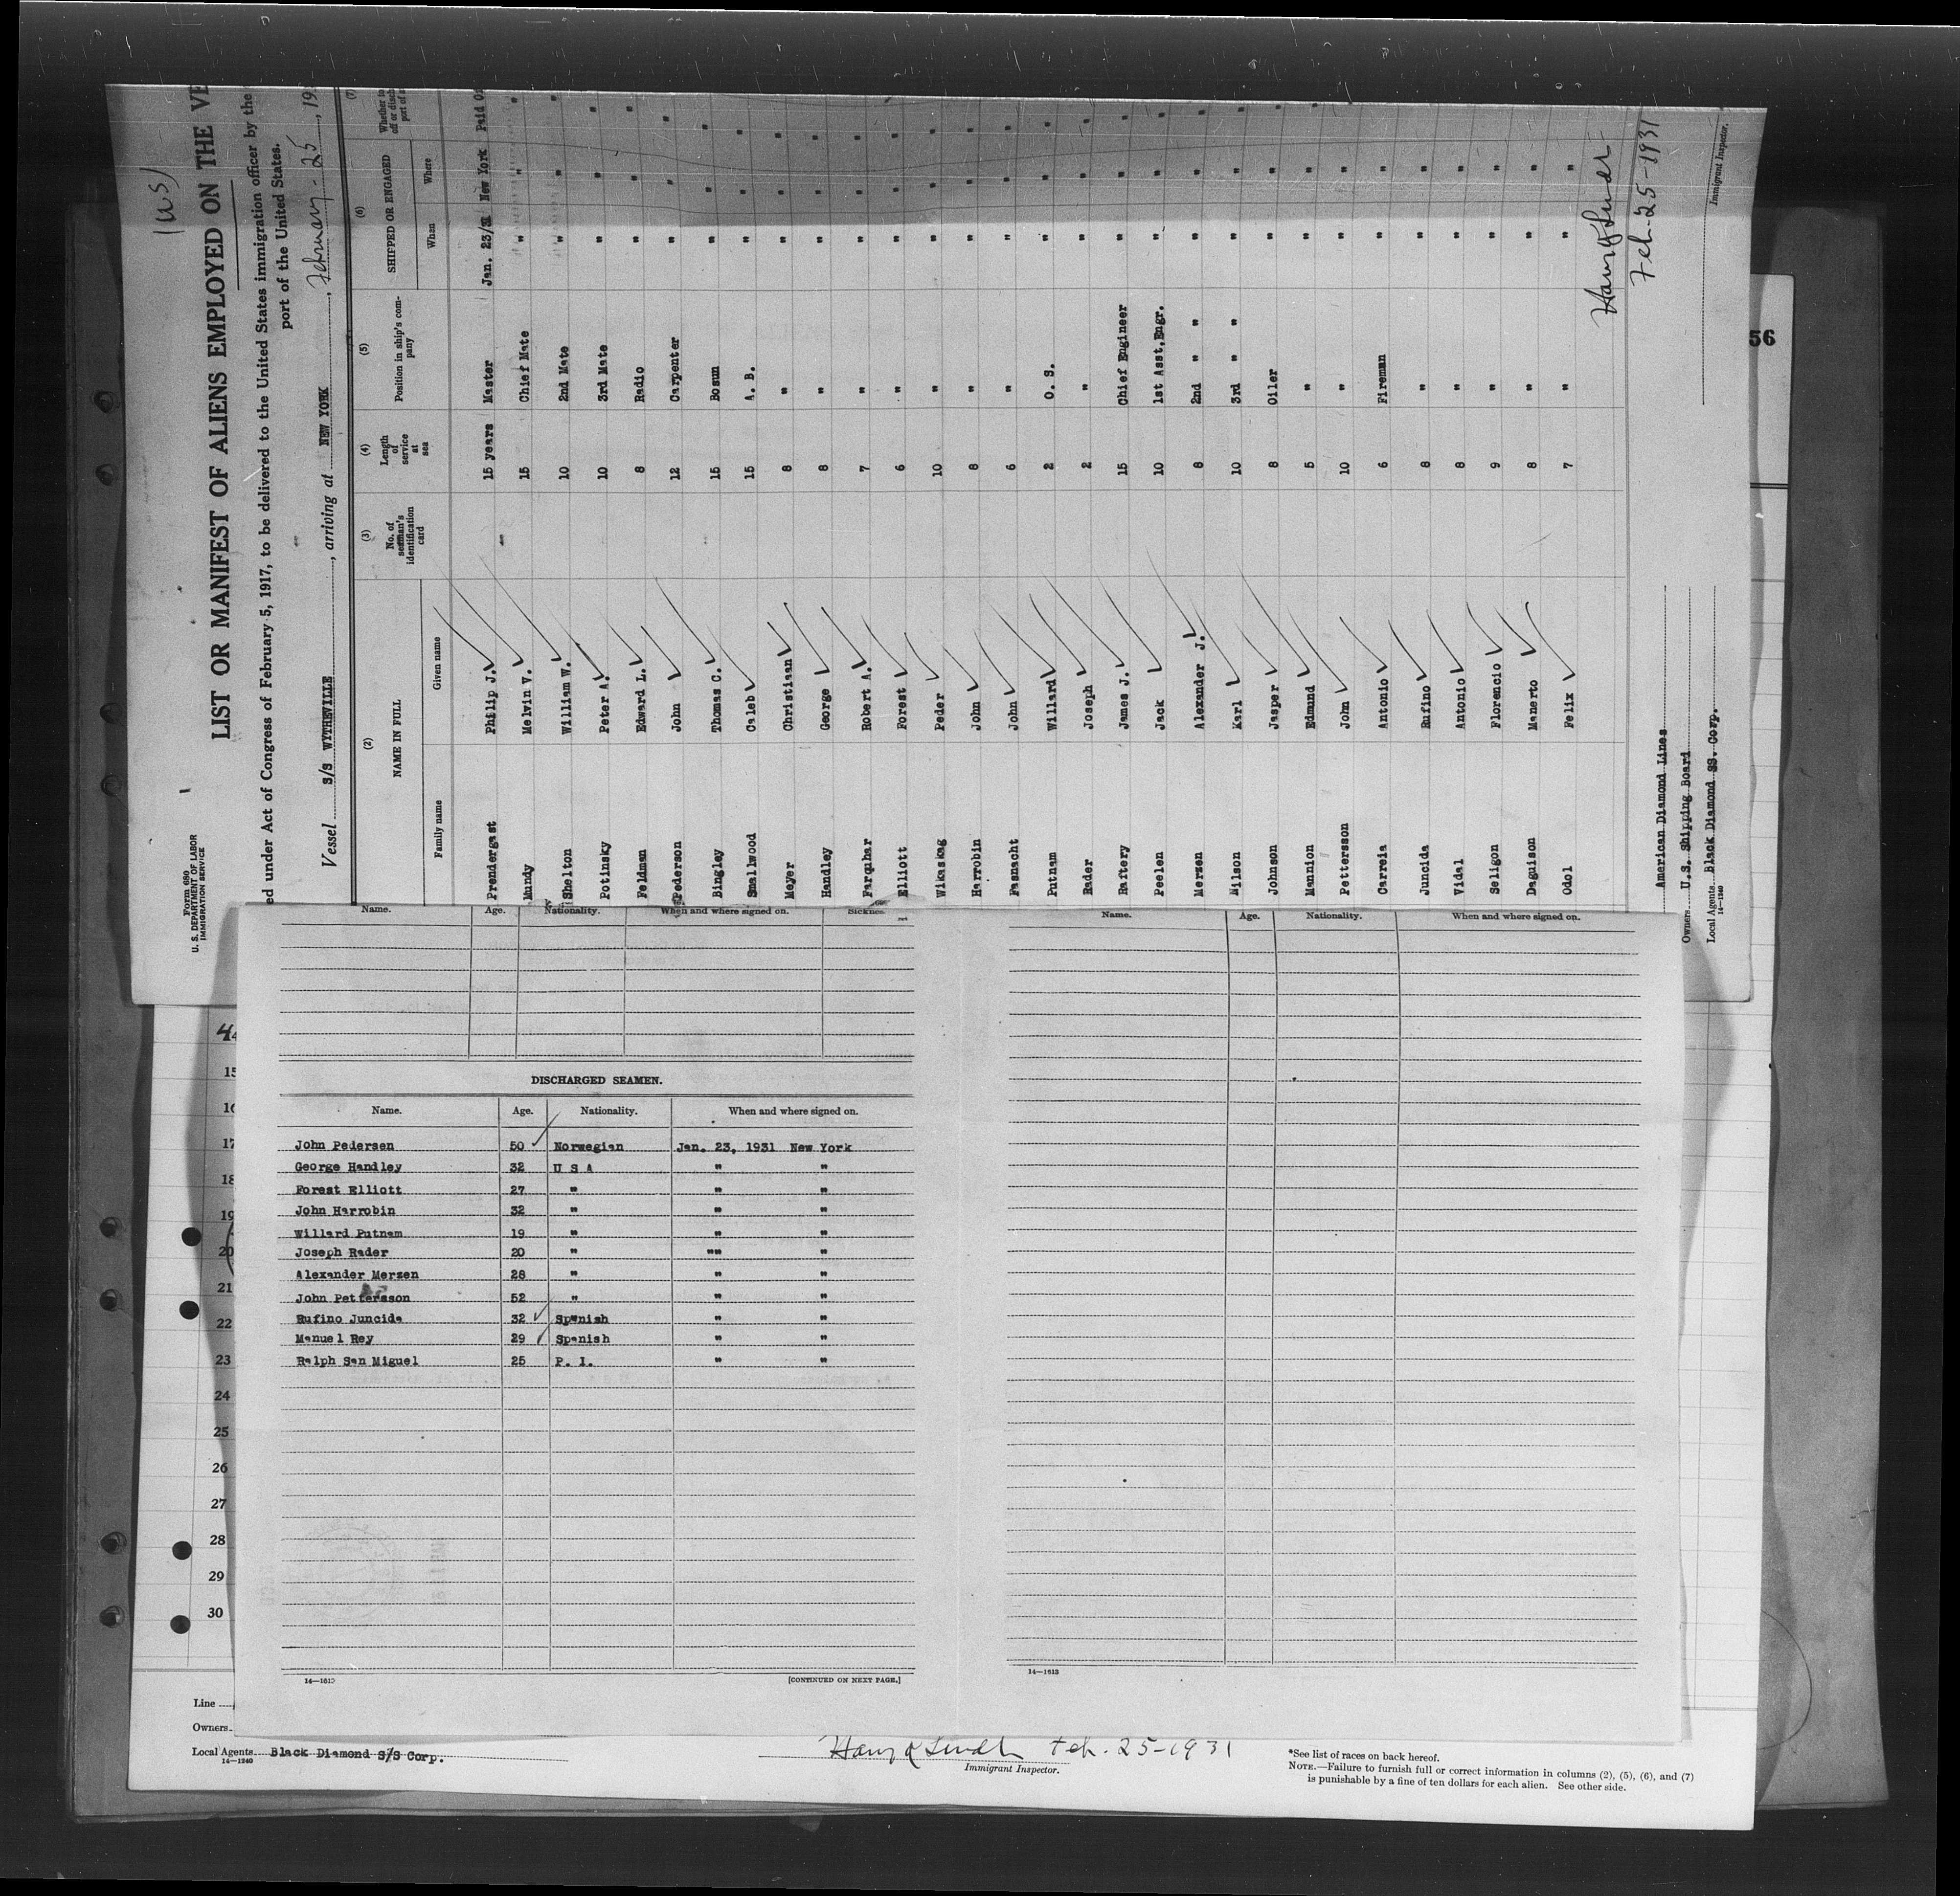 (U.S)
Form 680
U. S. DEPARTMENT OF LABOR
IMMIGRATION SERVICE
LIST OR MANIFEST OF ALIENS EMPLOYED ON THE VE
ed under Act of Congress of February 5, 1917, to be delivered to the United States immigration officer by the
port of the United States.
Vessel S/S WYTHEVILLE, arriving at NEW YORK, February-25, 19
(2) (3) (4) (5) (6) (7)
NAME IN FULL No. of seaman's identification card Length of service at sea Position in ship's company SHIPPED OR ENGAGED
Family name Given name When Where
Prendergast Philip J. 15 years Master Jan. 23/31 New York Paid
Mundy Melvin V. 15 Chief Mate " " "
Shelton William W. 10 2nd Mate " " "
Potinsky Peter A. 10 3rd Mate " " "
Feldman Edward L. 8 Radio " " "
Pederson John 12 Carpenter " " "
Bingley Thomas C. 15 Bosun " " "
Smallwood Caleb 15 A. B. " " "
Meyer Christiaan 8 " " " "
Handley George 8 " " " "
Farquhar Robert A. 7 " " " "
Elliott Forest 6 " " " "
Wikaskag Peder 10 " " " "
Harrobin John 8 " " " "
Fasnacht John 6 " " " "
Putnam Willard 2 O. S. " " "
Rader Joseph 2 " " " "
Raftery James J. 15 Chief Engineer " " "
Peelen Jack 10 1st Asst. Engr. " " "
Merzen Alexander J. 8 2nd " " " " "
Nilson Karl 10 3rd " " " " "
Johnson Jasper 8 Oiler " " "
Mannion Edmund 5 " " " "
Pettersson John 10 " " " "
Carreia Antonio 6 Fireman " " "
Juncida Rufino 8 " " "
Vidal Antonio 8 " " "
Seligon Florencio 9 " " "
Daguison Manerto 8 " " "
Odol Felix 7 " " "
American Diamond Lines
Owners U.S. Shipping Board
Local Agents Black Diamond SS. Corp.
14—1240
Feb-25-1931
Immigrant Inspector.
56
Name. Age. Nationality. When and where signed on.
Name. Age. Nationality. When and where signed on.
DISCHARGED SEAMEN.
Name. Age. Nationality. When and where signed on.
John Pedersen 50 Norwegian Jan. 23, 1931 New York
George Handley 32 U S A " "
Forest Elliott 27 " " "
John Harrobin 32 " " "
Willard Putnam 19 " " "
Joseph Rader 20 " "" "
Alexander Merzen 28 " " "
John Pettersson 52 " " "
Rufino Juncida 32 Spanish " "
Manuel Rey 29 Spanish " "
Ralph San Miguel 25 P. I. " "
14—1613 [CONTINUED ON NEXT PAGE.]
14—1613
17
18
19
20
21
22
23
24
25
26
27
28
29
30
Line
Owners
Local Agents Black Diamond S/S Corp.
14—1240
Feb. 25-1931
Immigrant Inspector.
*See list of races on back hereof.
NOTE.—Failure to furnish full or correct information in columns (2), (5), (6), and (7)
is punishable by a fine of ten dollars for each alien. See other side.